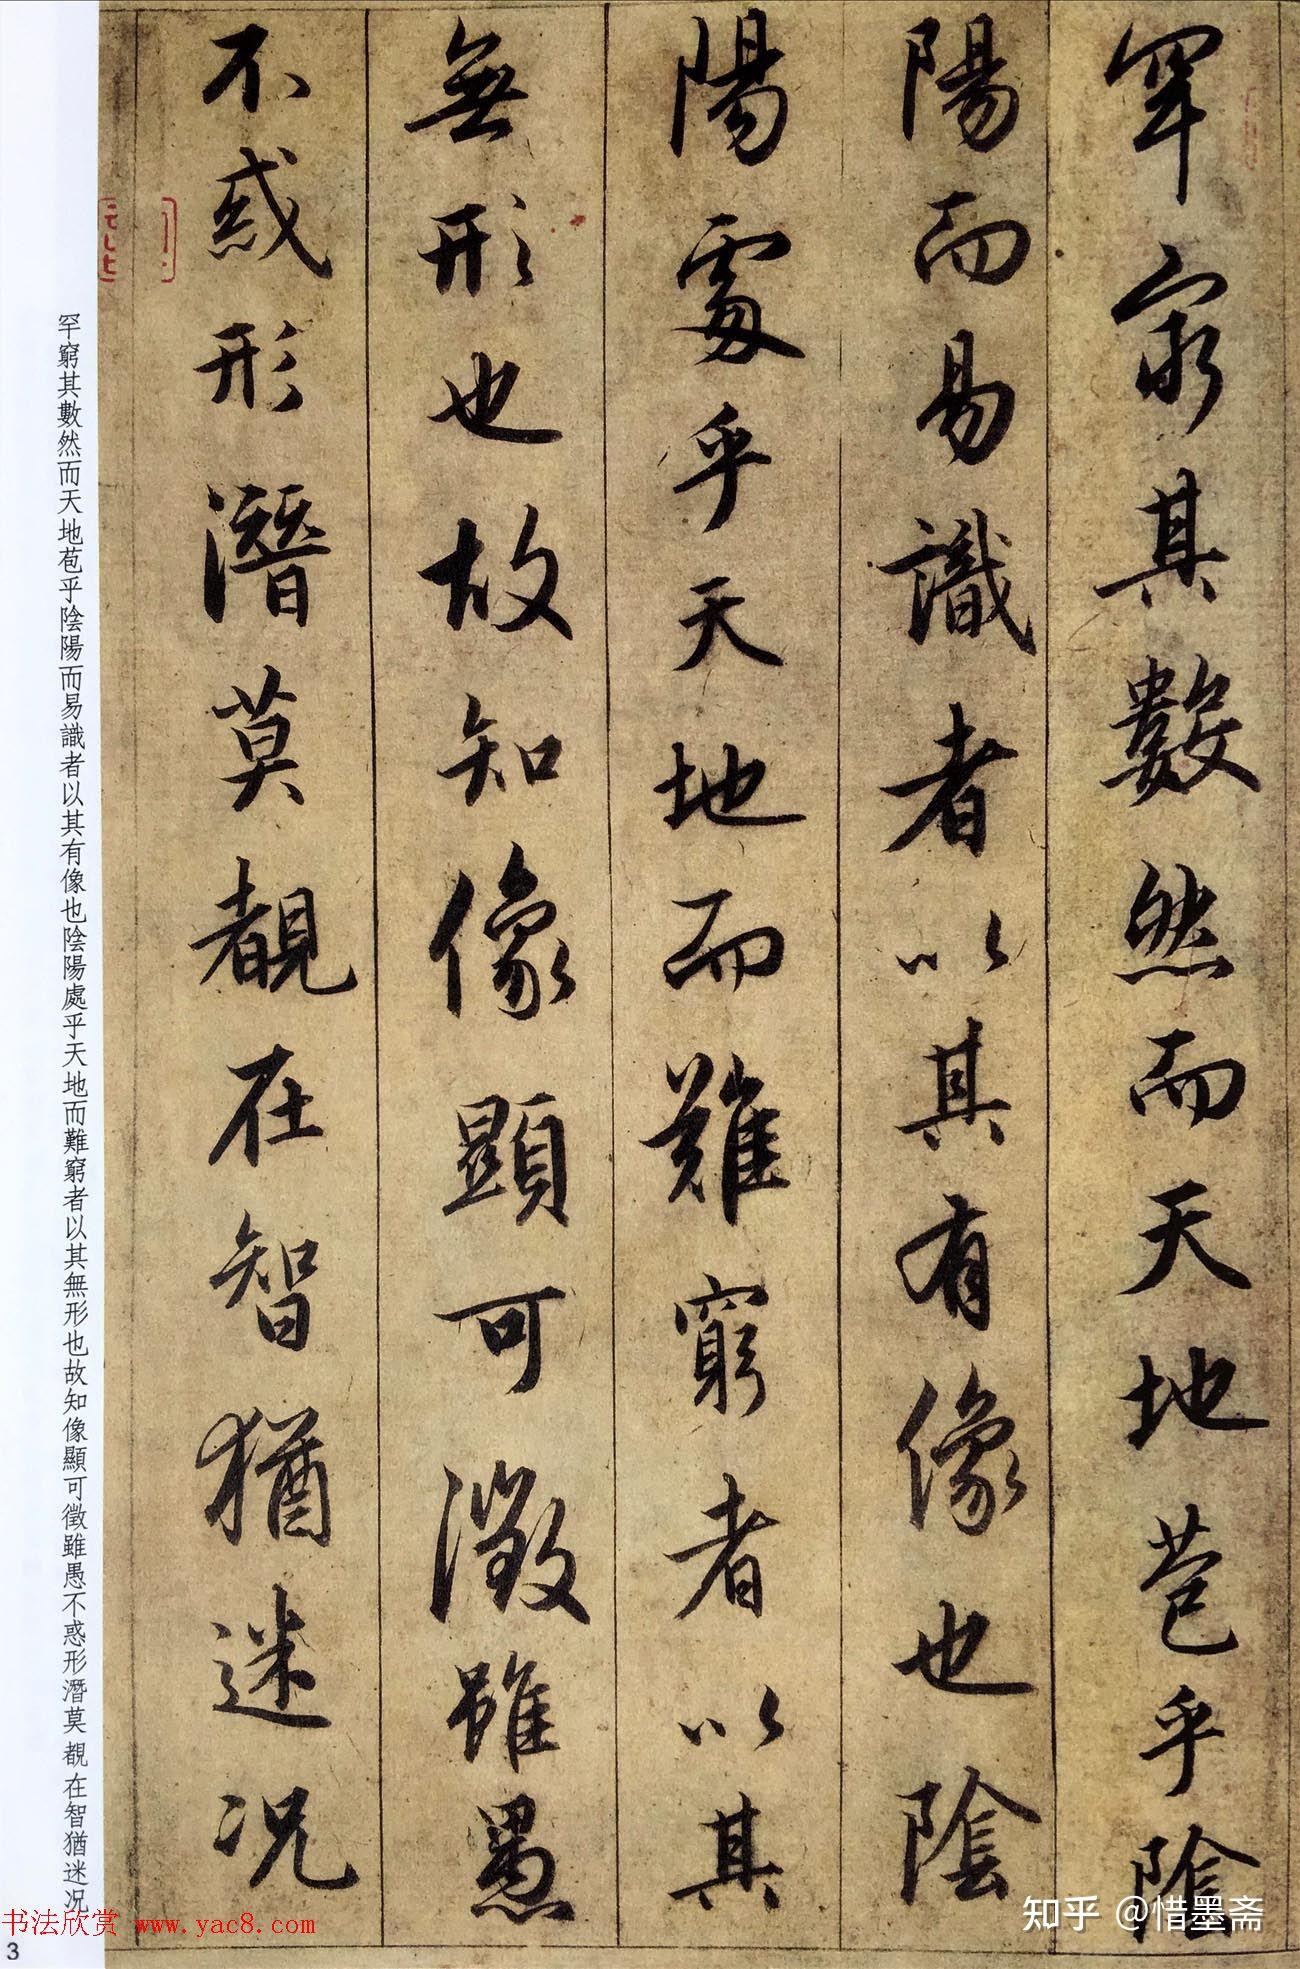 罕窮其數然而天地苞乎陰
陽而易識者以其有像也陰
陽處乎天地而難窮者以其
無形也故知像顯可徵雖愚
不惑形潛莫覩在智猶迷况
罕窮其數然而天地苞乎陰陽而易識者以其有像也陰陽處乎天地而難窮者以其無形也故知像顯可徵雖愚不惑形潛莫覩在智猶迷况
书法欣赏 www.yac8.com
3
知乎 @惜墨斋